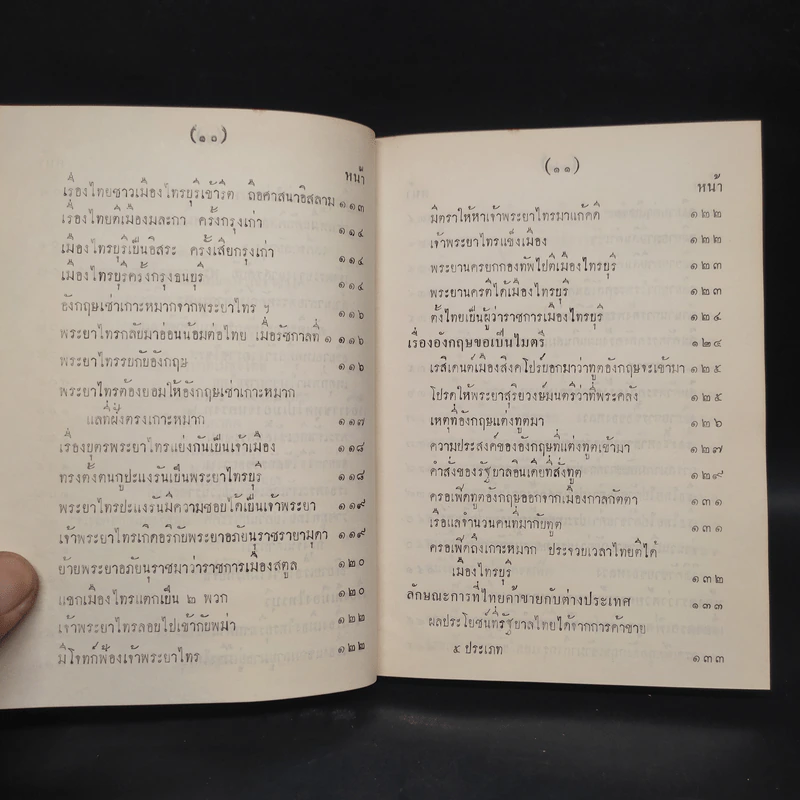 (๑๐)
หน้า
เรื่องไทยชาวเมืองไทรบุรีเข้ารีต ถือศาสนาอิสลาม ๑๑๓
เรื่องไทยตีเมืองมละกา ครั้งกรุงเก่า ๑๑๔
เมืองไทรบุรีเป็นอิสระ ครั้งเสียกรุงเก่า ๑๑๔
เมืองไทรบุรีครั้งกรุงธนบุรี ๑๑๔
อังกฤษเช่าเกาะหมากจากพระยาไทร ฯ ๑๑๖
พระยาไทรกลับมาอ่อนน้อมต่อไทย เมื่อรัชกาลที่ ๑ ๑๑๖
พระยาไทรรบกับอังกฤษ ๑๑๖
พระยาไทรต้องยอมให้อังกฤษเช่าเกาะหมาก
แลที่ฝั่งตรงเกาะหมาก ๑๑๗
เรื่องบุตรพระยาไทรแย่งกันเป็นเจ้าเมือง ๑๑๘
ทรงตั้งตนกูปะแงรันเป็นพระยาไทรบุรี ๑๑๘
พระยาไทรปะแงรันมีความชอบได้เป็นเจ้าพระยา ๑๑๙
เจ้าพระยาไทรเกิดอริกับพระยาอภัยนุราชรายามุดา ๑๑๙
ย้ายพระยาอภัยนุราชมาว่าราชการเมืองสตูล ๑๒๐
แขกเมืองไทรแตกเป็น ๒ พวก ๑๒๐
เจ้าพระยาไทรลอบไปเข้ากับพม่า ๑๒๒
มีโจทก์ฟ้องเจ้าพระยาไทร ๑๒๒
(๑๑)
หน้า
มีตราให้หาเจ้าพระยาไทรมาแก้คดี ๑๒๒
เจ้าพระยาไทรแข็งเมือง ๑๒๒
พระยานครยกกองทัพไปตีเมืองไทรบุรี ๑๒๓
พระยานครตีได้เมืองไทรบุรี ๑๒๓
ตั้งไทยเป็นผู้ว่าราชการเมืองไทรบุรี ๑๒๔
เรื่องอังกฤษขอเป็นไมตรี ๑๒๔
เรสิเดนต์เมืองสิงคโปร์บอกมาว่าทูตอังกฤษจะเข้ามา ๑๒๕
โปรดให้พระยาสุริยวงษ์มนตรีว่าที่พระคลัง ๑๒๕
เหตุที่อังกฤษแต่งทูตมา ๑๒๖
ความประสงค์ของอังกฤษที่แต่งทูตเข้ามา ๑๒๗
คำสั่งของรัฐบาลอินเดียที่สั่งทูต ๑๒๙
ครอเฟิดทูตอังกฤษออกจากเมืองกาลกัตตา ๑๓๑
เรือแลจำนวนคนที่มากับทูต ๑๓๑
ครอเฟิดถึงเกาะหมาก ประจวบเวลาไทยตีได้
เมืองไทรบุรี ๑๓๒
ลักษณะการที่ไทยค้าขายกับต่างประเทศ ๑๓๓
ผลประโยชน์ที่รัฐบาลไทยได้จากการค้าขาย
๕ ประเภท ๑๓๓